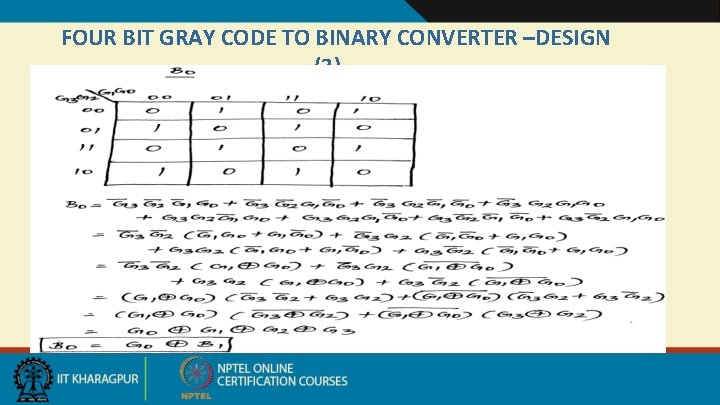 FOUR BIT GRAY CODE TO BINARY CONVERTER –DESIGN
B0
G3G2 G1G0
00 01 11 10
00 0 1 0 1
01 1 0 1 0
11 0 1 0 1
10 1 0 1 0
B0 = G̅3 G̅2 G̅1 G0 + G̅3 G̅2 G1 G̅0 + G̅3 G2 G̅1 G̅0 + G̅3 G2 G1 G0
+ G3 G2 G̅1 G0 + G3 G2 G1 G̅0 + G3 G̅2 G̅1 G̅0 + G3 G̅2 G1 G0
= G̅3 G̅2 (G̅1 G0 + G1 G̅0) + G̅3 G2 (G̅1 G̅0 + G1 G0)
+ G3 G2 (G̅1 G0 + G1 G̅0) + G3 G̅2 (G̅1 G̅0 + G1 G0)
= G̅3 G̅2 (G1 ⊕ G0) + G̅3 G2 (\overline{G1 ⊕ G0})
+ G3 G2 (G1 ⊕ G0) + G3 G̅2 (\overline{G1 ⊕ G0})
= (G1 ⊕ G0) (G̅3 G̅2 + G3 G2) + (\overline{G1 ⊕ G0}) (G̅3 G2 + G3 G̅2)
= (G1 ⊕ G0) (\overline{G3 ⊕ G2}) + (\overline{G1 ⊕ G0}) (G3 ⊕ G2)
= G0 ⊕ G1 ⊕ G2 ⊕ G3
B0 = G0 ⊕ B1
IIT KHARAGPUR
NPTEL
NPTEL ONLINE
CERTIFICATION COURSES